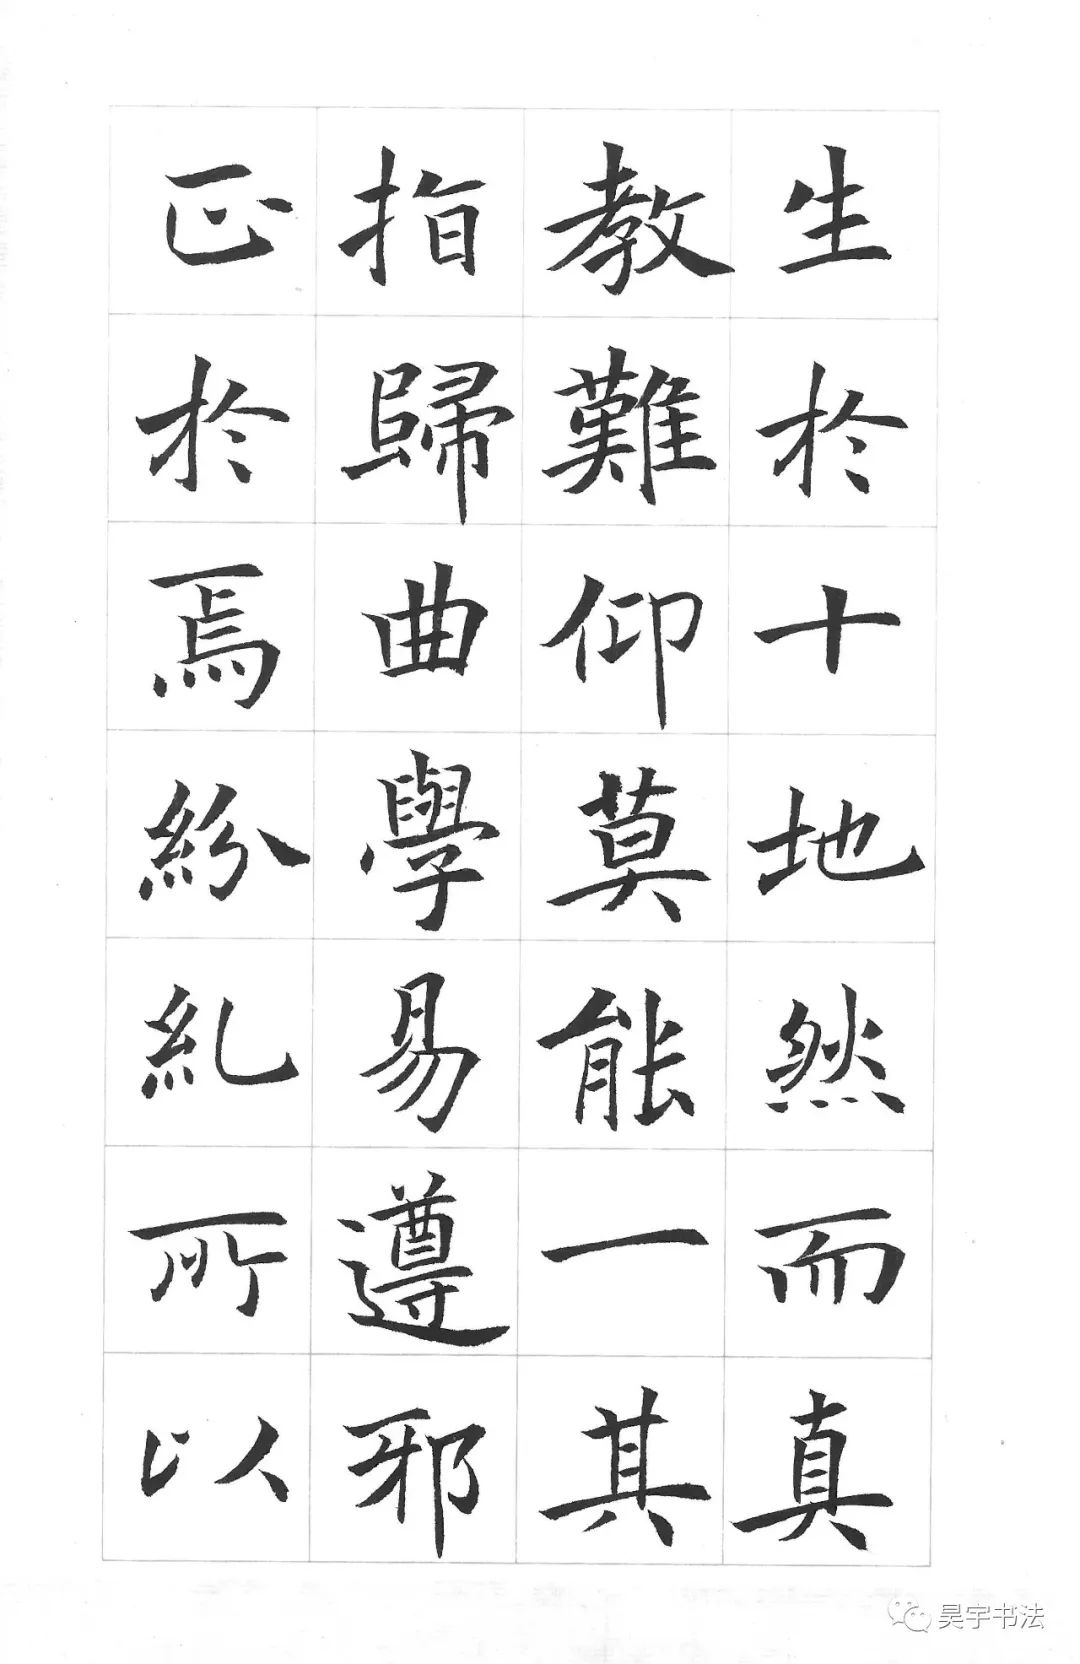 生於十地然而真
教難仰莫能一其
指歸曲學易遵邪
正於焉紛糺所以
昊宇书法